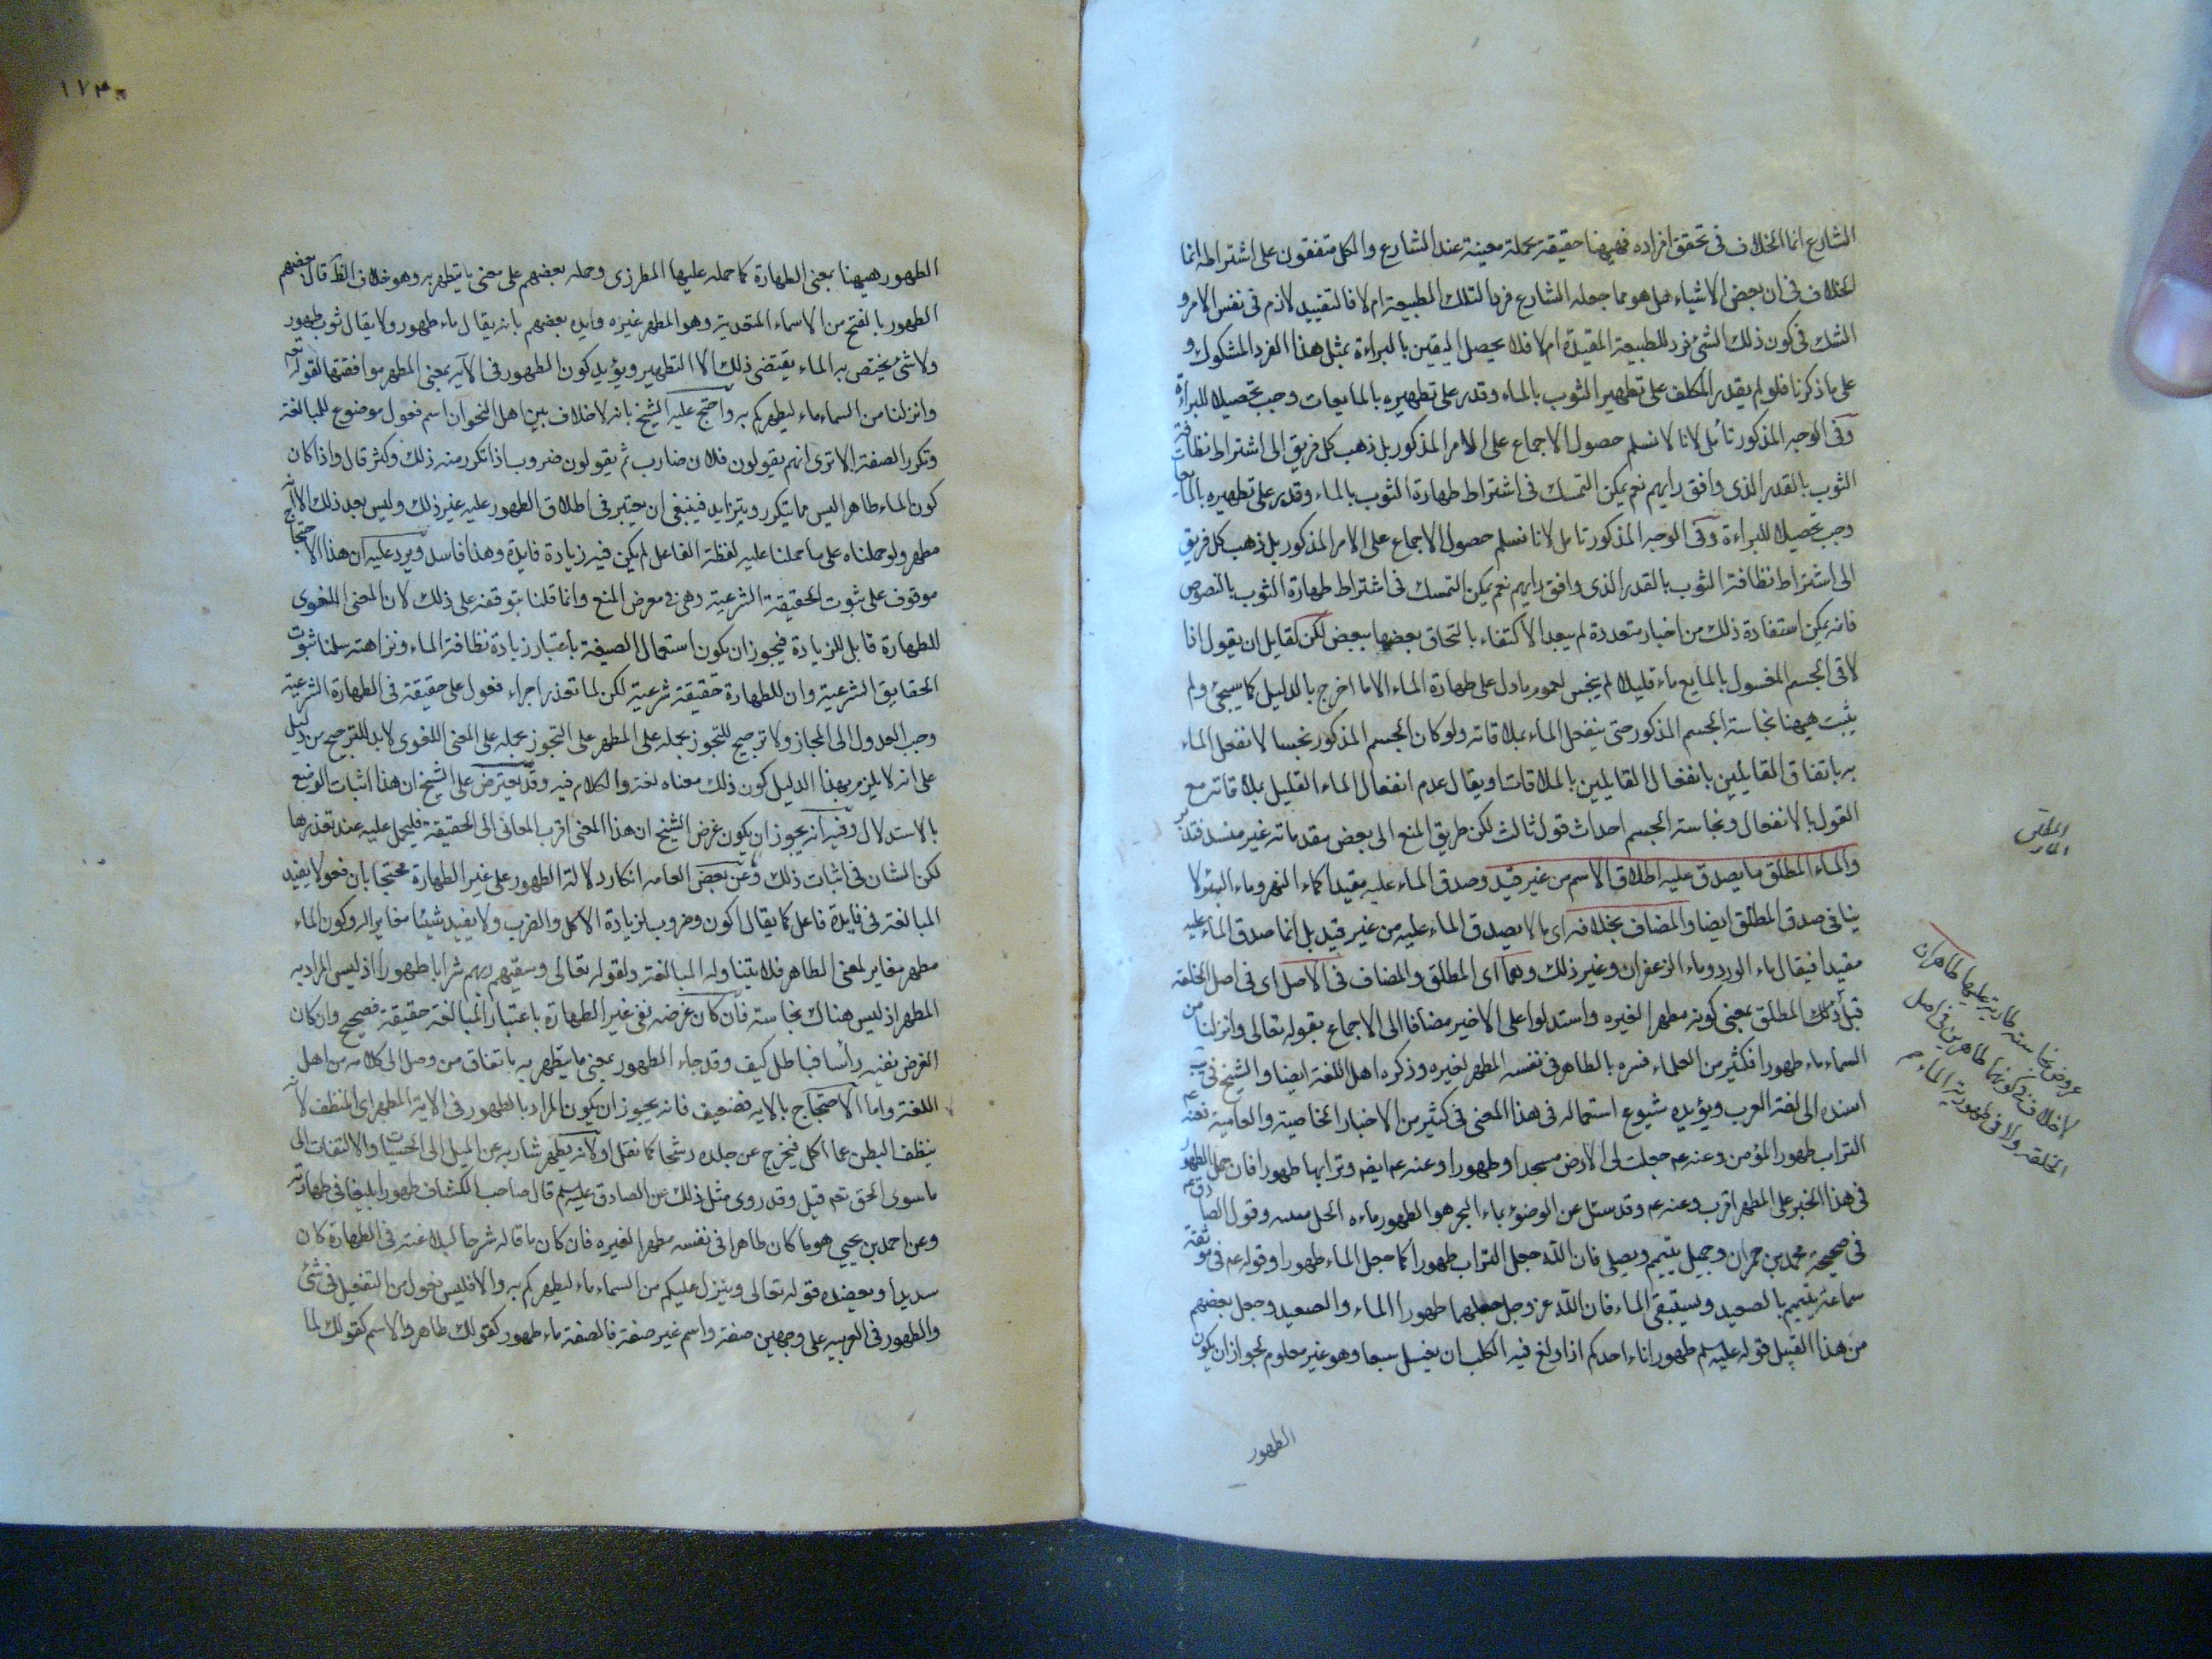 الشارع انما الخلاف فى تحقق افراده فهيهنا حقيقة مجملة معينة عند الشارع والكل متفقون على اشتراطه انما
الخلاف فى ان بعض الاشياء هل هو مما جعله الشارع فردا لتلك الطبيعة ام لا فالتقييد لازم فى نفس الامر و
الشك فى كون ذلك الشئ فرد للطبيعة المقيدة ام لا فلا يحصل اليقين بالبراءة بمثل هذا الفرد المشكوك و
على ما ذكرنا فلو لم يقدر المكلف على تطهير الثوب بالماء وقدر على تطهيره بالمايعات وجب تحصيلا للبراءة
وفى الوجه المذكور تأمل لانا لا نسلم حصول الاجماع على الامر المذكور بل ذهب كل فريق الى اشتراط نظافة
الثوب بالقدر الذى وافق رايهم نعم يمكن التمسك فى اشتراط طهارة الثوب بالماء وقدر على تطهيره بالمايعات
وجب تحصيلا للبراءة وفى الوجه المذكور تامل لانا نسلم حصول الاجماع على الامر المذكور بل ذهب كل فريق
الى اشتراط نظافة الثوب بالقدر الذى وافق رايهم نعم يمكن التمسك فى اشتراط طهارة الثوب بالنصوص
فانه يمكن استفادة ذلك من اخبار متعددة لم يبعد الاكتفاء بالتحاق بعضها ببعض لكن لقايل ان يقول اذا
لاقى الجسم المغسول بالمايع ماء قليلا لم ينجس لعموم ما دل على طهارة الماء الا ما اخرج بالدليل كما سيجئ ولم
يثبت هيهنا نجاسة الجسم المذكور حتى ينفعل الماء بملاقاته ولو كان الجسم المذكور نجسا لانفعل الماء
به باتفاق القايلين بانفعال القايلين بالملاقات او يقال عدم انفعال الماء القليل بملاقاته مع
القول بالانفعال ونجاسة الجسم احداث قول ثالث لكن طريق المنع الى بعض مقدماته غير منسد فتدبر
والماء المطلق ما يصدق عليه اطلاق الاسم من غير قيد وصدق الماء عليه مقيدا كماء النهر وماء البئر لا
ينافى صدق المطلق ايضا والمضاف بخلافه اى ما لا يصدق الماء عليه من غير قيد بل انما صدق الماء عليه
مقيدا فيقال ماء الورد وماء الزعفران وغير ذلك وهما اى المطلق والمضاف فى الاصل اى فى اصل الخلقه
المطلق بمعنى كونه مطهرا لغيره واستدلوا على الاخير مضافا الى الاجماع بقوله تعالى وانزلنا من
السماء ماء طهورا فكثير من العلماء فسره بالطاهر فى نفسه المطهر لغيره وذكره اهل اللغة ايضا والشيخ فى يب
اسنده الى لغة العرب ويؤيده شيوع استعماله فى هذا المعنى فى كثير من الاخبار الخاصية والعامية فعنه عم
التراب طهور المؤمن وعنه عم جعلت لى الارض مسجدا وطهورا وعنه عم ايضم وترابها طهورا فان حمل الطهور
فى هذا الخبر على المطهر اقرب وعنه عم وقد سئل عن الوضوء بماء البحر هو الطهور ماءه الحل ميتته وقول الصادق عم
فى صحيحة محمد بن حمران وجميل يتيمم ويصلى فان الله جعل التراب طهورا كما جعل الماء طهورا وقوله عم فى موثقة
سماعة يتيمم بالصعيد ويستبقى الماء فان الله عز وجل جعلهما طهورا الماء والصعيد وجعل بعضهم
من هذا القبيل قوله عليه سلم طهور اناء احدكم اذا ولغ فيه الكلب ان يغسل سبعا وهو غير معلوم لجواز ان يكون
الطهور
عروض نجاسة طارية عليها طاهران
لا خلاف فى كونهما طاهرين فى اصل
الخلقه ولا فى طهورية الماء
١٧٣
الطهور هيهنا بمعنى الطهارة كما حمله عليها المطرزى وحمله بعضهم على معنى ما يتطهر به وهو خلاف الظ قال بعضهم
الطهور بالفتح من الاسماء المتعدية وهو المطهر غيره وايده بعضهم بانه يقال ماء طهور ولا يقال ثوب طهور
ولا شئ يختص به الماء يقتضى ذلك الا التطهير ويؤيد كون الطهور فى الآيه بمعنى المطهر موافقتها لقوله تعم
وانزلنا من السماء ماء ليطهركم به واحتج عليه الشيخ بانه لا خلاف بين اهل النحو ان اسم فعول موضوع للمبالغة
وتكرر الصفة الا ترى انهم يقولون فلان ضارب ثم يقولون ضروب اذا تكرر منه ذلك وكثر قال واذا كان
كون الماء طاهرا ليس مما يتكرر ويتزايد فينبغى ان يعتبر فى اطلاق الطهور عليه غير ذلك وليس بعد ذلك الا انه
مطهر ولو حملناه على ما حملنا عليه لفظة الفاعل لم يكن فيه زيادة فايدة وهذا فاسد ويرد عليه ان هذا الاحتجاج
موقوف على ثبوت الحقيقة الشرعية وهى فى معرض المنع وانما قلنا بتوقفه على ذلك لان المعنى اللغوى
للطهارة قابل للزيادة فيجوز ان يكون استعمال الصيغة باعتبار زيادة نظافة الماء ونزاهته سلمنا ثبوت
الحقايق الشرعية وان للطهارة حقيقة شرعية لكن لما تعذر اجراء فعول على حقيقة فى الطهارة الشرعية
وجب العدول الى المجاز ولا ترجيح للتجوز بحمله على المطهر على التجوز بحمله على المعنى اللغوى لا بد للترجيح من دليل
على انه لا يلزم بهذا الدليل كون ذلك معناه لغة والكلام فيه وقد يعترض على الشيخ ان هذا اثبات الوضع
بالاستدلال وفيه انه يجوز ان يكون غرض الشيخ ان هذا المعنى اقرب المعانى الى الحقيقة فليحمل عليه عند تعذرها
لكن الشان فى اثبات ذلك وعن بعض العامه انكار دلالة الطهور على غير الطهارة محتجا بان فعولا يفيد
المبالغة فى فايدة فاعل كما يقال اكول وضروب لزيادة الاكل والضرب ولا يفيد شيئا مغايرا له وكون الماء
مطهر مغاير لمعنى الطاهر فلا يتناوله المبالغة ولقوله تعالى وسقيهم ربهم شرابا طهورا اذ ليس المراد به
المطهر اذ ليس هناك نجاسة فان كان غرضه نفى غير الطهارة باعتبار المبالغة حقيقة فصحيح وان كان
الغرض نفيه رأسا فباطل كيف وقد جاء الطهور بمعنى ما يتطهر به باتفاق من وصل الى كلامه من اهل
اللغة واما الاحتجاج بالايه فضعيف فانه يجوز ان يكون المراد بالطهور فى الاية المطهر اى المنظف لانه
ينظف البطن عما اكل فيخرج عن جلده رشحا كما نقل او لانه يطهر شاربه عن الميل الى الحسيات والالتفات الى
ما سوى الحق تعم قيل وقد روى مثل ذلك عن الصادق عليه سلم قال صاحب الكشاف طهورا بليغا فى طهارته
وعن احمد بن يحيى هو ما كان طاهرا فى نفسه مطهرا لغيره فان كان ما قاله شرحا لبلاغته فى الطهارة كان
سديدا ويعضده قوله تعالى وينزل عليكم من السماء ماء ليطهركم به والا فليس فعول من التفعيل فى شئ
والطهور فى العربيه على وجهين صفة واسم غير صفة فالصفة ماء طهور كقولك طاهر والاسم كقولك لما